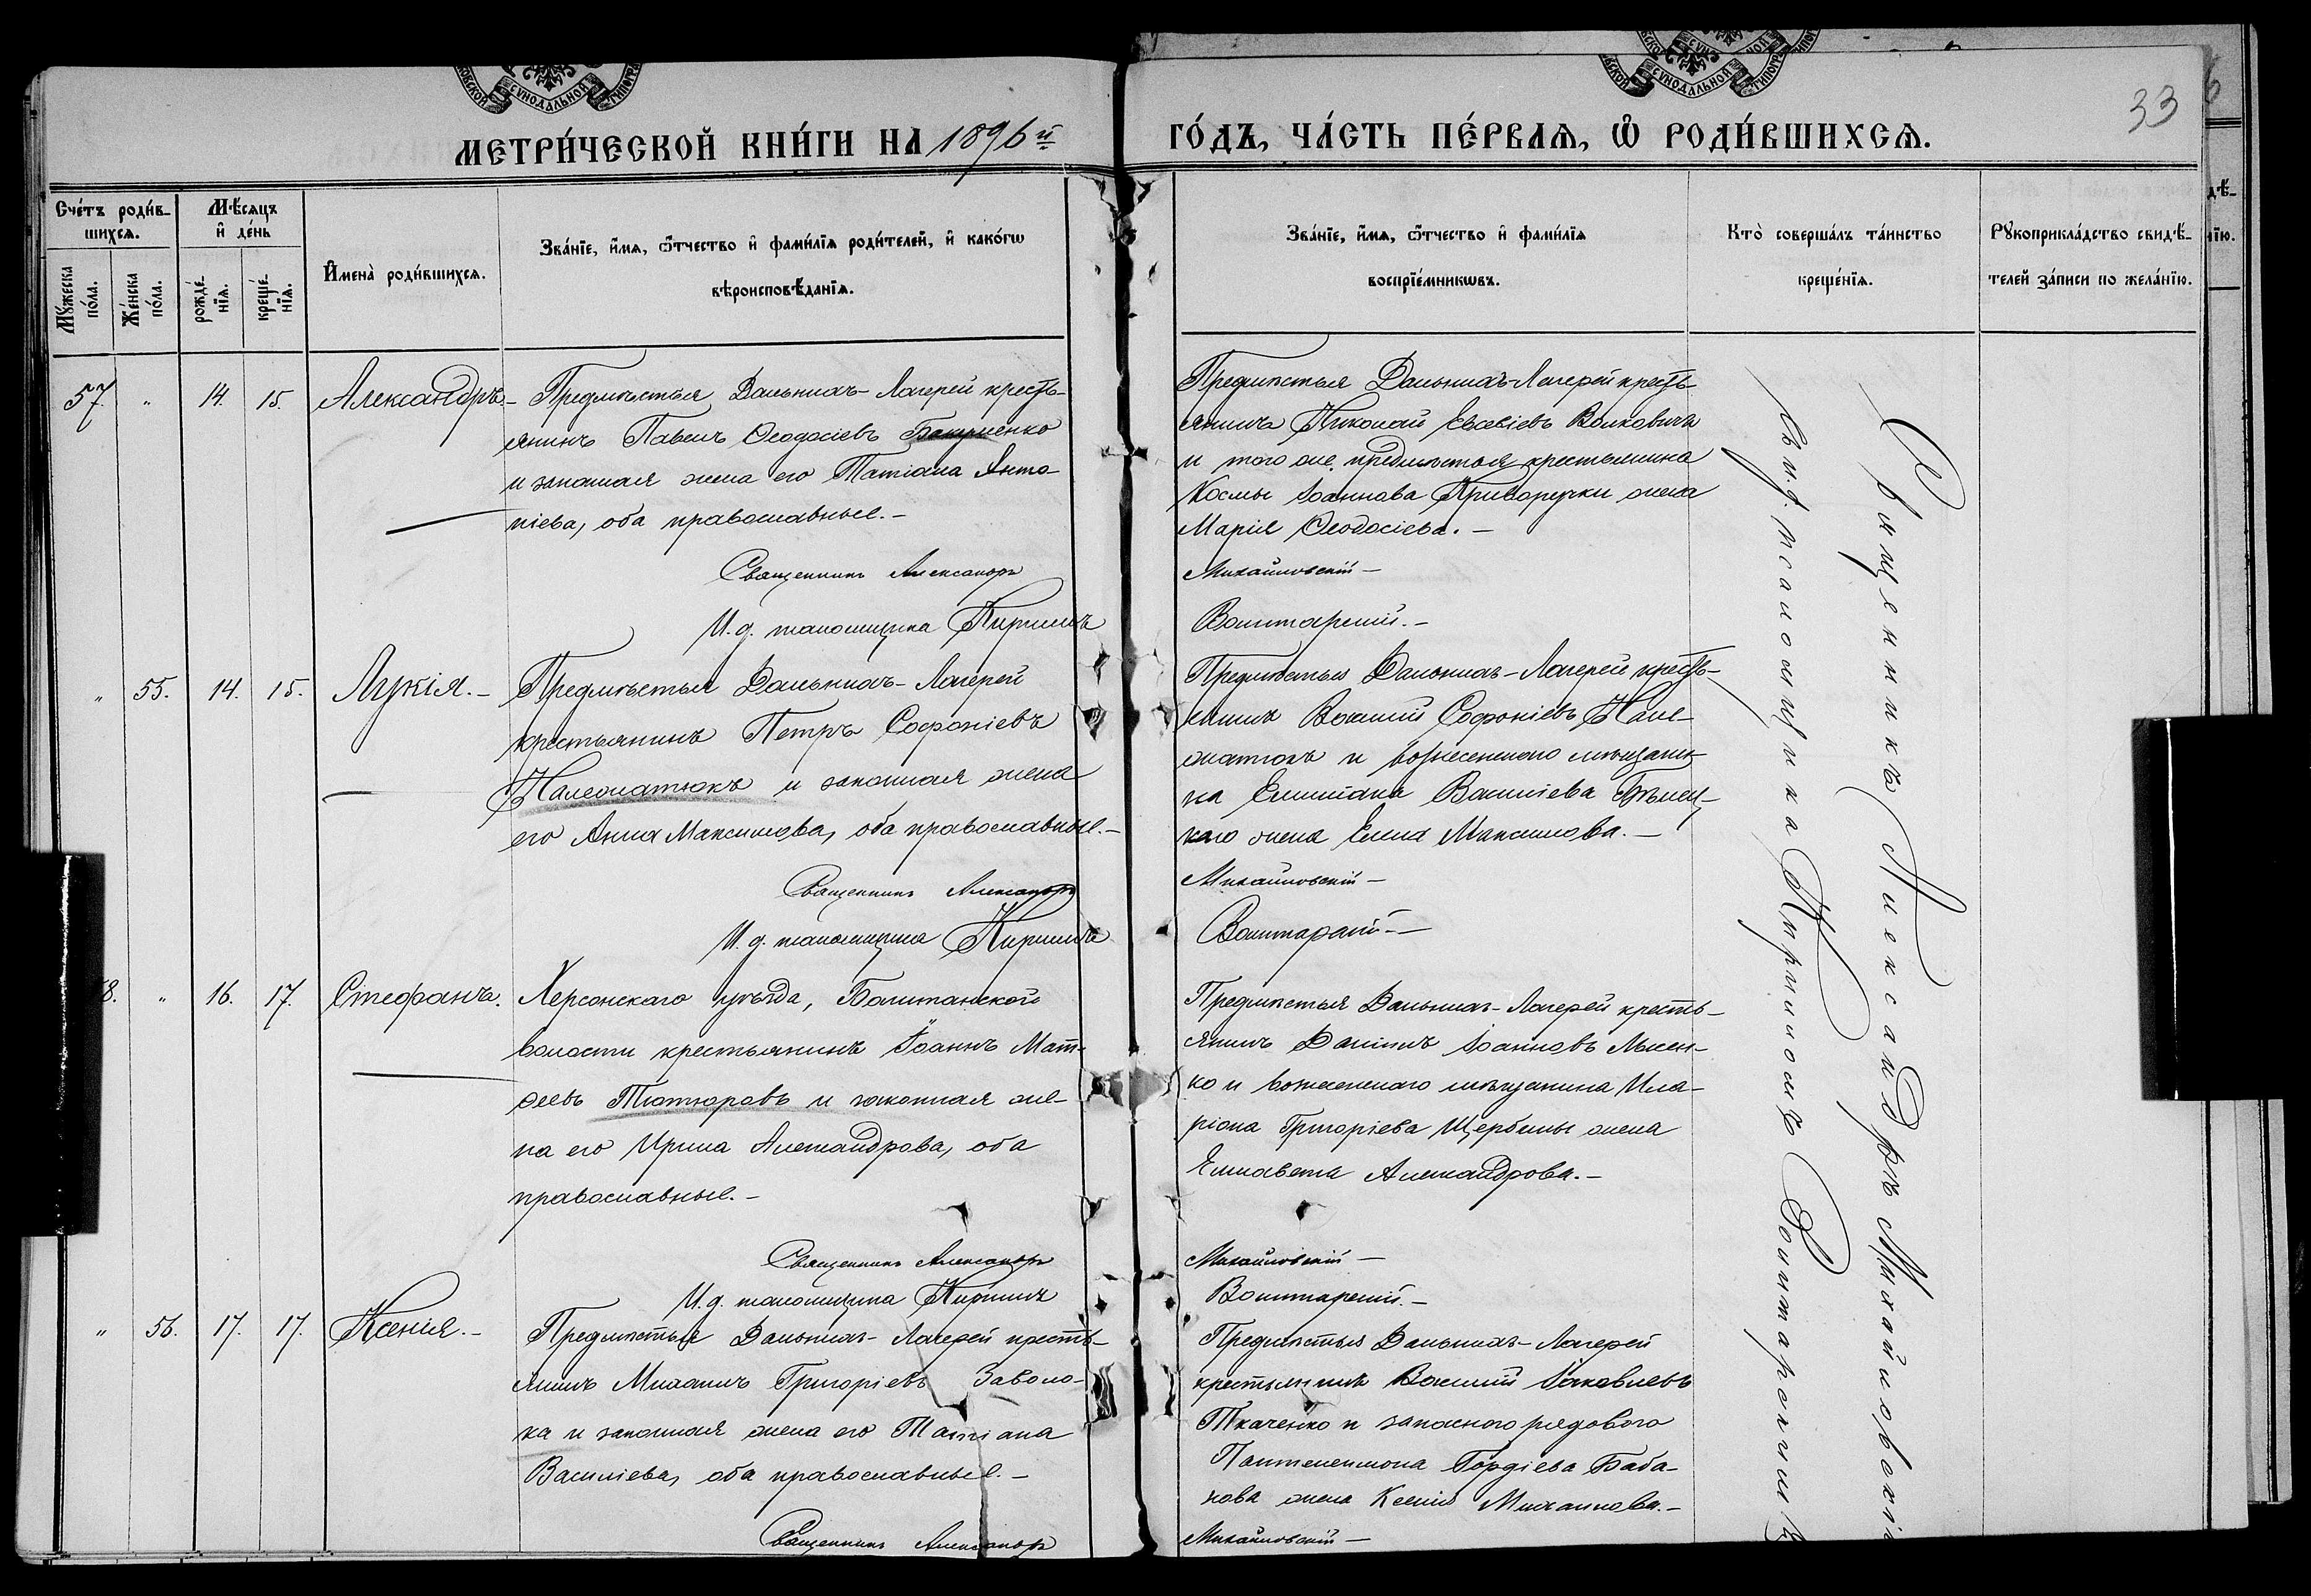 МЕТРИ́ЧЕСКОЙ КНИ́ГИ НА 1896й
ГО́ДЪ, ЧА́СТЬ ПЕ́РВАѦ, Ѡ РОДИ́ВШИХСѦ.
33
Сче́тъ роди́в-
шихсѧ.
Мꙋ́жеска по́ла.
Же́нска по́ла.
Мѣ́сѧцъ
и҆ де́нь
рожде́-
нїѧ.
креще́-
нїѧ.
И҆мена̀ роди́вшихсѧ.
Зва́нїе, и҆́мѧ, ѻ҆́тчество и҆ фами́лїѧ роди́телей, и҆ како́гѡ
вѣроисповѣ́данїѧ.
Зва́нїе, и҆́мѧ, ѻ҆́тчество и҆ фами́лїѧ
воспрїе́мникѡвъ.
Кто̀ соверша́лъ та́инство
креще́нїѧ.
Рꙋкоприкла́дство свидѣ́-
телей за́писи по жела́нїю.
57. " 14. 15. Александръ.-
Предмѣстья Дальнихъ-Лагерей кресть-
янинъ Павелъ Ѳеодосіевъ
и законная жена его Татіана Анто-
ніева, оба православные.-
Священникъ Александръ
И. д. псаломщика Кириллъ
Предмѣстья Дальнихъ-Лагерей кресть-
янинъ Николай Евсевіевъ Волковичъ
и того же предмѣстья крестьянина
Космы Іоаннова Криворучки жена
Марія Ѳеодосіева.-
Михайловскій-
" 55. 14. 15. Лукія.-
Предмѣстья Дальнихъ-Лагерей
крестьянинъ Петръ Софоніевъ
Належатюкъ и законная жена
его Анна Максимова, оба православные.-
Священникъ Александръ
И. д. псаломщика Кириллъ
Предмѣстья Дальнихъ-Лагерей кресть-
янинъ Василій Софоніевъ Нале-
жатюкъ и вознесенского мѣщани-
на Василіева
жена Елена Максимова.-
Михайловскій-
8. " 16. 17. Стефанъ.
Херсонскаго уѣзда, Баштанской
волости крестьянинъ Іоаннъ Мат-
ѳеевъ Тютюровъ и законная же-
на его Ирина Александрова, оба
православные.-
Священникъ Александръ
И. д. псаломщика Кириллъ
Предмѣстья Дальнихъ-Лагерей кресть-
янинъ Даніилъ Іоанновъ Лысен-
ко и вознесенского мѣщанина Ила-
ріона Григоріева Щербины жена
Елисавета Александрова.-
Михайловскій-
" 56. 17. 17. Ксенія.-
Предмѣстья Дальнихъ-Лагерей кресть-
янинъ Михаилъ Григоріевъ Заволо-
ка и законная жена его Татіана
Василіева, оба православные.-
Священникъ Александръ
Предмѣстья Дальнихъ-Лагерей
крестьянинъ Василій Іаковлевъ
Ткаченко и запасного рядового
Пантелеимона Гордіева Баба-
нова жена Ксенія Михаилова.-
Михайловскій-
Священникъ Александръ Михайловскій
Съ и. д. псаломщика Кирилломъ